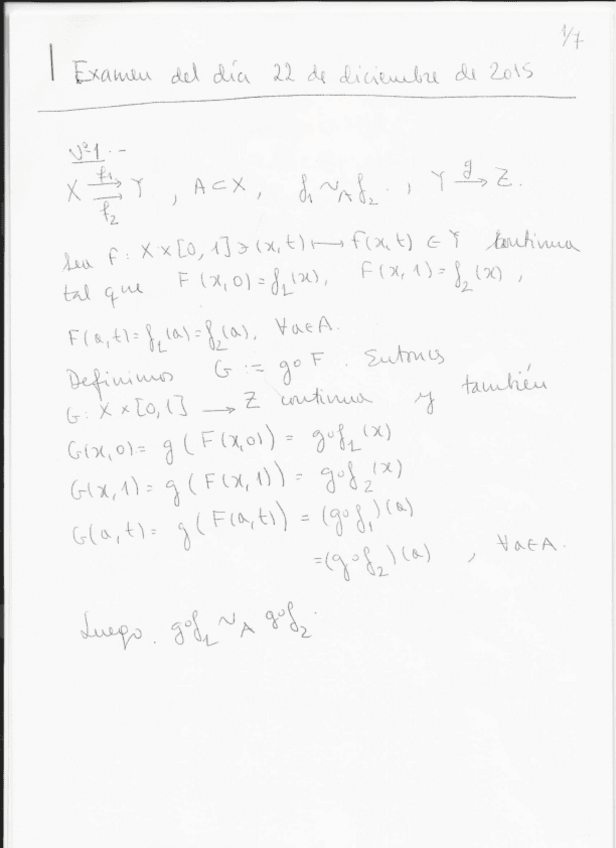 1/7
Examen del día 22 de diciembre de 2015
Nº1.-
X f₁⟶ ⟶f₂ Y , A⊂X, f₁ ~_A f₂ , Y g⟶ Z.
Sea F: X×[0,1]∋(x,t)⟼F(x,t) ∈ Y continua
tal que F(x,0)=f₁(x), F(x,1)=f₂(x),
F(a,t)=f₁(a)=f₂(a), ∀a∈A.
Definimos G := g∘F. Entonces
G: X×[0,1] ⟶ Z continua y también
G(x,0)= g(F(x,0)) = g∘f₁(x)
G(x,1)= g(F(x,1)) = g∘f₂(x)
G(a,t)= g(F(a,t)) = (g∘f₁)(a)
=(g∘f₂)(a) , ∀a∈A.
Luego. g∘f₁ ~_A g∘f₂.